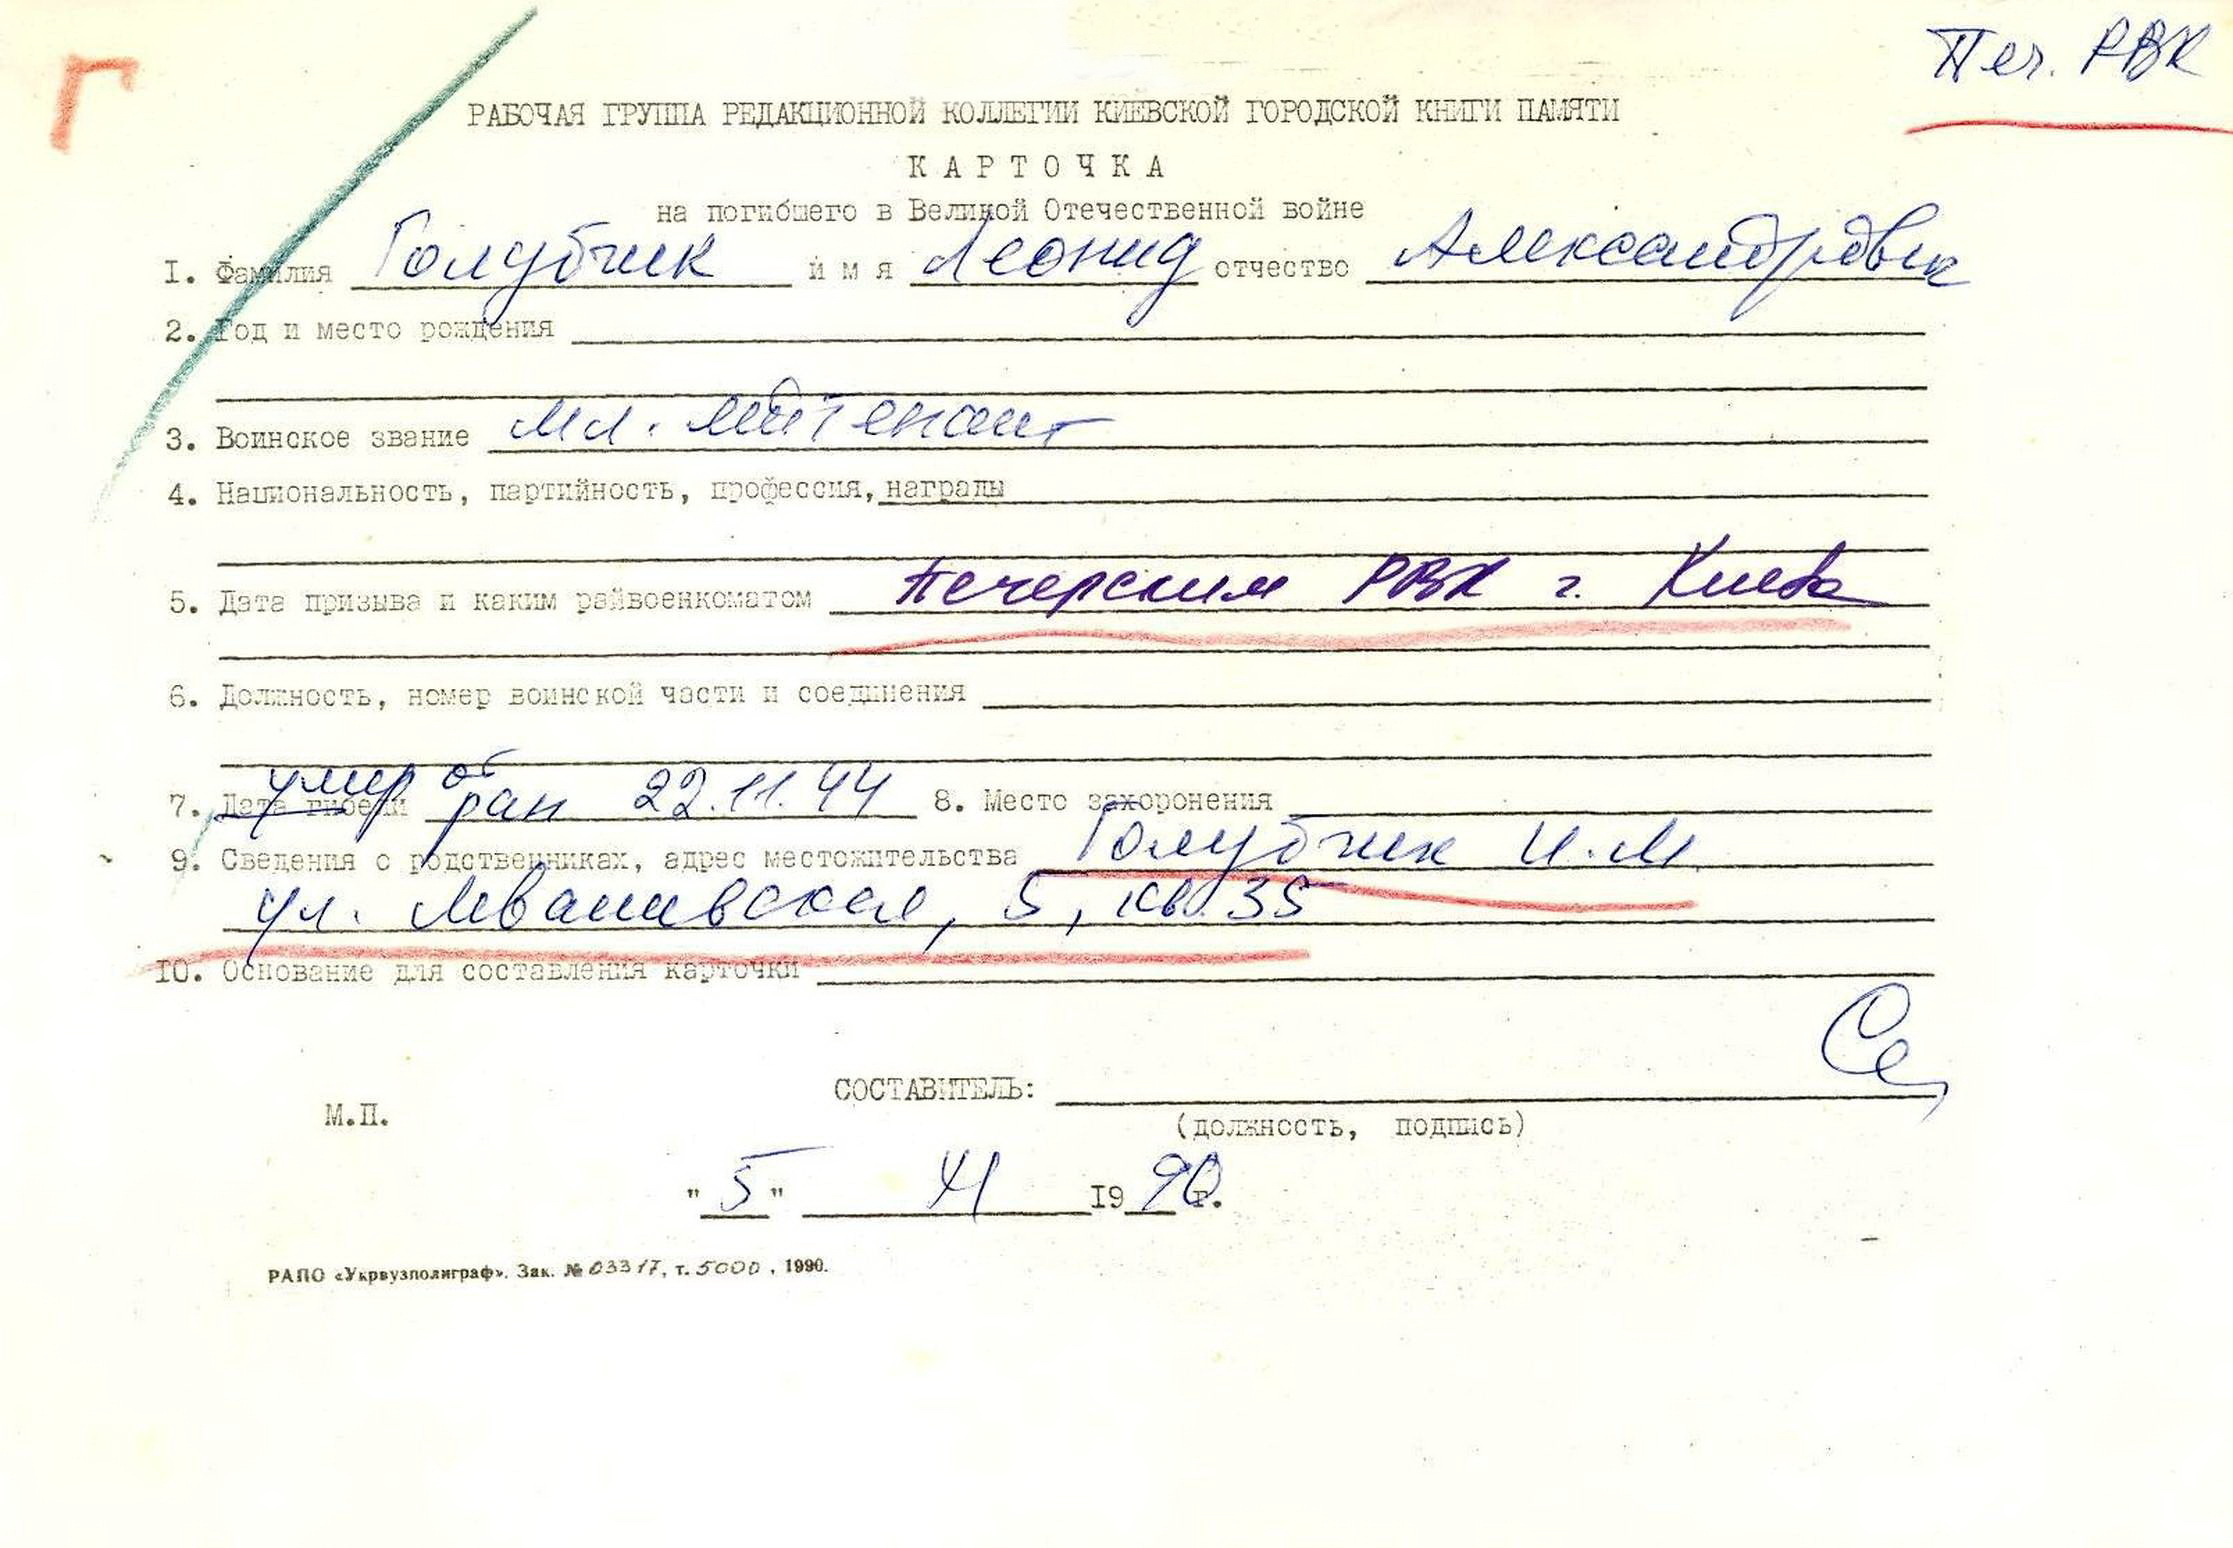 Г
Печ. РВК
РАБОЧАЯ ГРУППА РЕДАКЦИОННОЙ КОЛЛЕГИИ КИЕВСКОЙ ГОРОДСКОЙ КНИГИ ПАМЯТИ
КАРТОЧКА
на погибшего в Великой Отечественной войне
I. Фамилия Голубчик имя Леонид отчество Александрович
2. Год и место рождения
3. Воинское звание мл. лейтенант
4. Национальность, партийность, профессия, награды
5. Дата призыва и каким райвоенкоматом Печерским РВК г. Киева
6. Должность, номер воинской части и соединения
7. Дата гибели умер от ран 22.11.44 8. Место захоронения
9. Сведения о родственниках, адрес местожительства Голубчик И.М.
ул. 5, кв. 35
IO. Основание для составления карточки
СОСТАВИТЕЛЬ:
М.П.
(должность, подпись)
"5" XI 1990 г.
РАПО «Укрвузполиграф». Зак. № 03317, т. 5000, 1990.